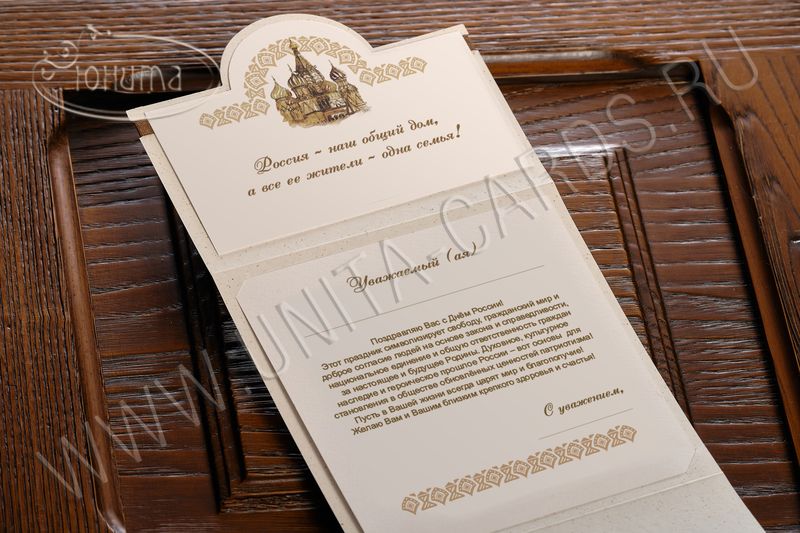 Юнита
Россия ~ наш общий дом,
а все ее жители ~ одна семья!
Уважаемый (ая)
Поздравляю Вас с Днём России!
Этот праздник символизирует свободу, гражданский мир и
доброе согласие людей на основе закона и справедливости,
национальное единение и общую ответственность граждан
за настоящее и будущее Родины. Духовное, культурное
наследие и героическое прошлое России – вот основы для
становления в обществе обновлённых ценностей патриотизма!
Пусть в Вашей жизни всегда царят мир и благополучие!
Желаю Вам и Вашим близким крепкого здоровья и счастья!
С уважением,
WWW.UNITA-CARDS.RU